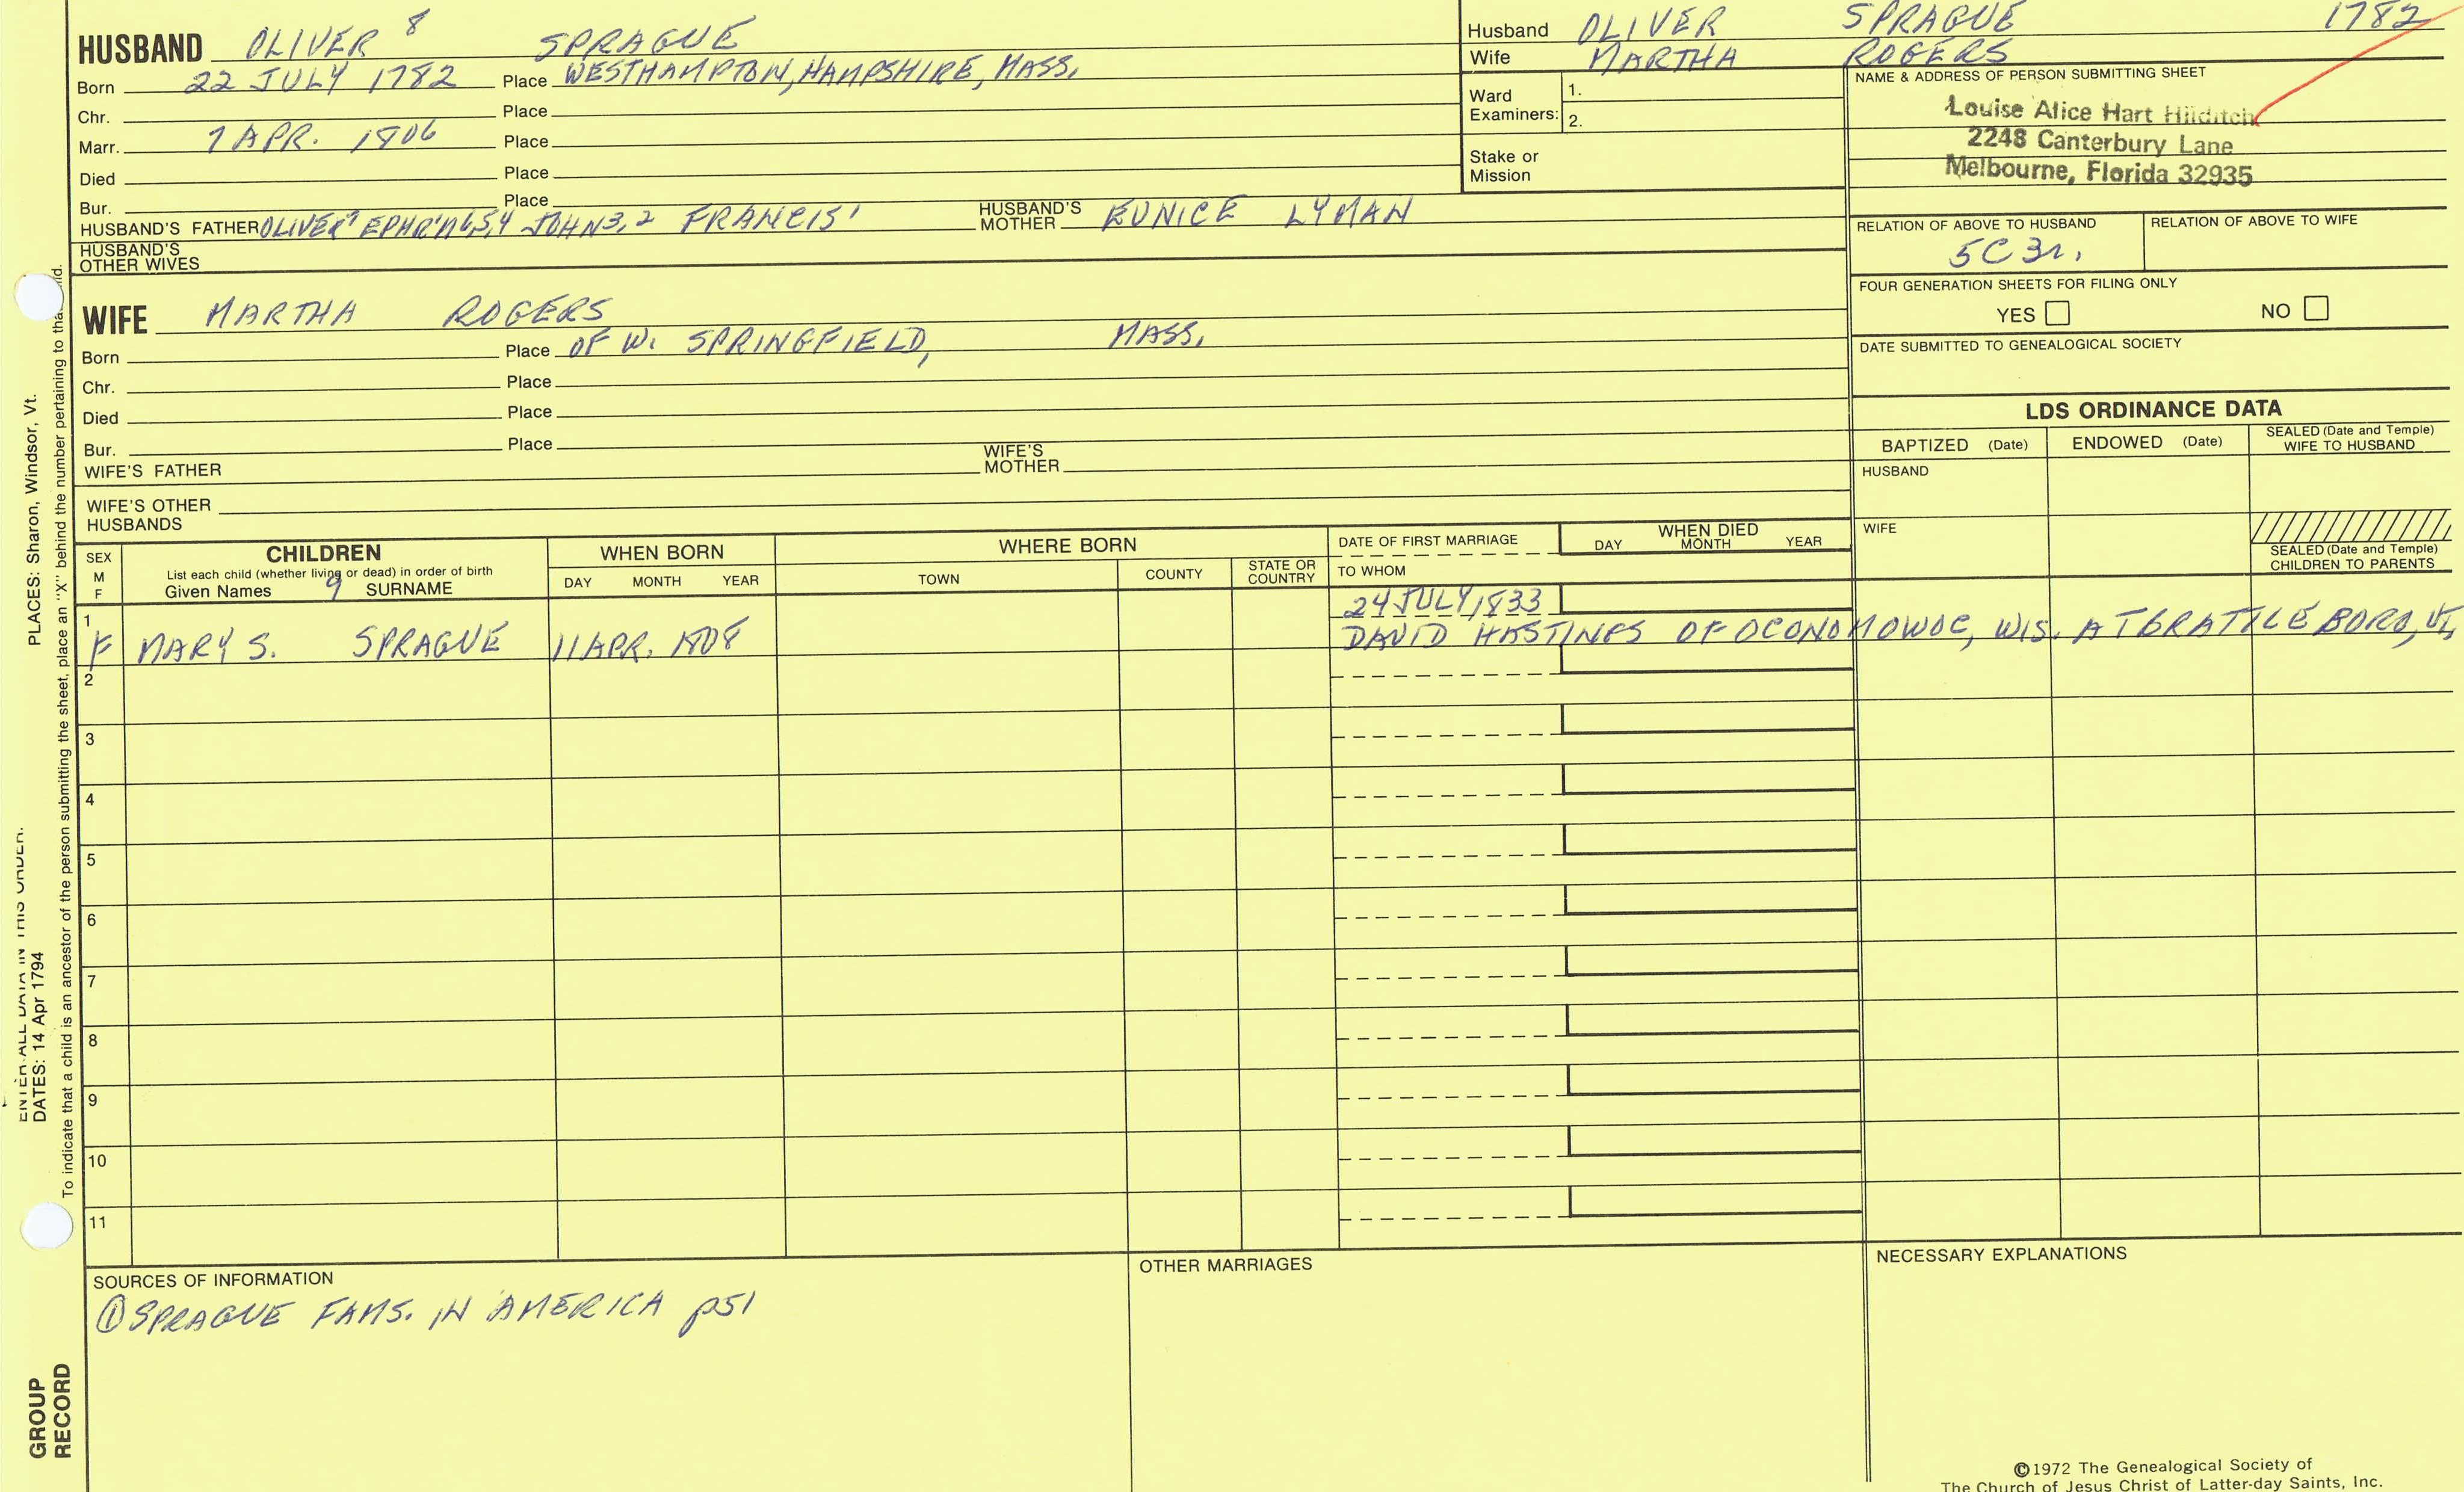 HUSBAND OLIVER 8 SPRAGUE
Born 22 JULY 1782 Place WESTHAMPTON, HAMPSHIRE, MASS.
Chr. Place
Marr. 7 APR. 1806 Place
Died Place
Bur. Place
HUSBAND'S FATHER OLIVER7 EPHR'M6,5,4 JOHN3,2 FRANCIS1 HUSBAND'S MOTHER EUNICE LYMAN
HUSBAND'S OTHER WIVES
Husband OLIVER SPRAGUE 1782
Wife MARTHA ROGERS
Ward Examiners: 1.
2.
Stake or Mission
NAME & ADDRESS OF PERSON SUBMITTING SHEET
Louise Alice Hart Hilditch
2248 Canterbury Lane
Melbourne, Florida 32935
RELATION OF ABOVE TO HUSBAND RELATION OF ABOVE TO WIFE
5C 3r.
FOUR GENERATION SHEETS FOR FILING ONLY
YES NO
DATE SUBMITTED TO GENEALOGICAL SOCIETY
WIFE MARTHA ROGERS
Born Place OF W. SPRINGFIELD, MASS.
Chr. Place
Died Place
Bur. Place
WIFE'S FATHER WIFE'S MOTHER
WIFE'S OTHER HUSBANDS
LDS ORDINANCE DATA
BAPTIZED (Date) ENDOWED (Date) SEALED (Date and Temple) WIFE TO HUSBAND
HUSBAND
WIFE
SEALED (Date and Temple) CHILDREN TO PARENTS
SEX M F
CHILDREN
List each child (whether living or dead) in order of birth
Given Names 9 SURNAME
WHEN BORN
DAY MONTH YEAR
WHERE BORN
TOWN COUNTY STATE OR COUNTRY
DATE OF FIRST MARRIAGE
TO WHOM
WHEN DIED
DAY MONTH YEAR
1
24 JULY, 1833
F MARY S. SPRAGUE 11 APR. 1808 DAVID HASTINES OF OCONOMOWOC, WIS. AT BRATTLEBORO, VT.
2
3
4
5
6
7
8
9
10
11
SOURCES OF INFORMATION
① SPRAGUE FAMS. IN AMERICA p51
OTHER MARRIAGES
NECESSARY EXPLANATIONS
©1972 The Genealogical Society of
The Church of Jesus Christ of Latter-day Saints, Inc.
ENTER ALL DATA IN THIS ORDER:
DATES: 14 Apr 1794 PLACES: Sharon, Windsor, Vt.
To indicate that a child is an ancestor of the person submitting the sheet, place an "X" behind the number pertaining to tha
GROUP
RECORD